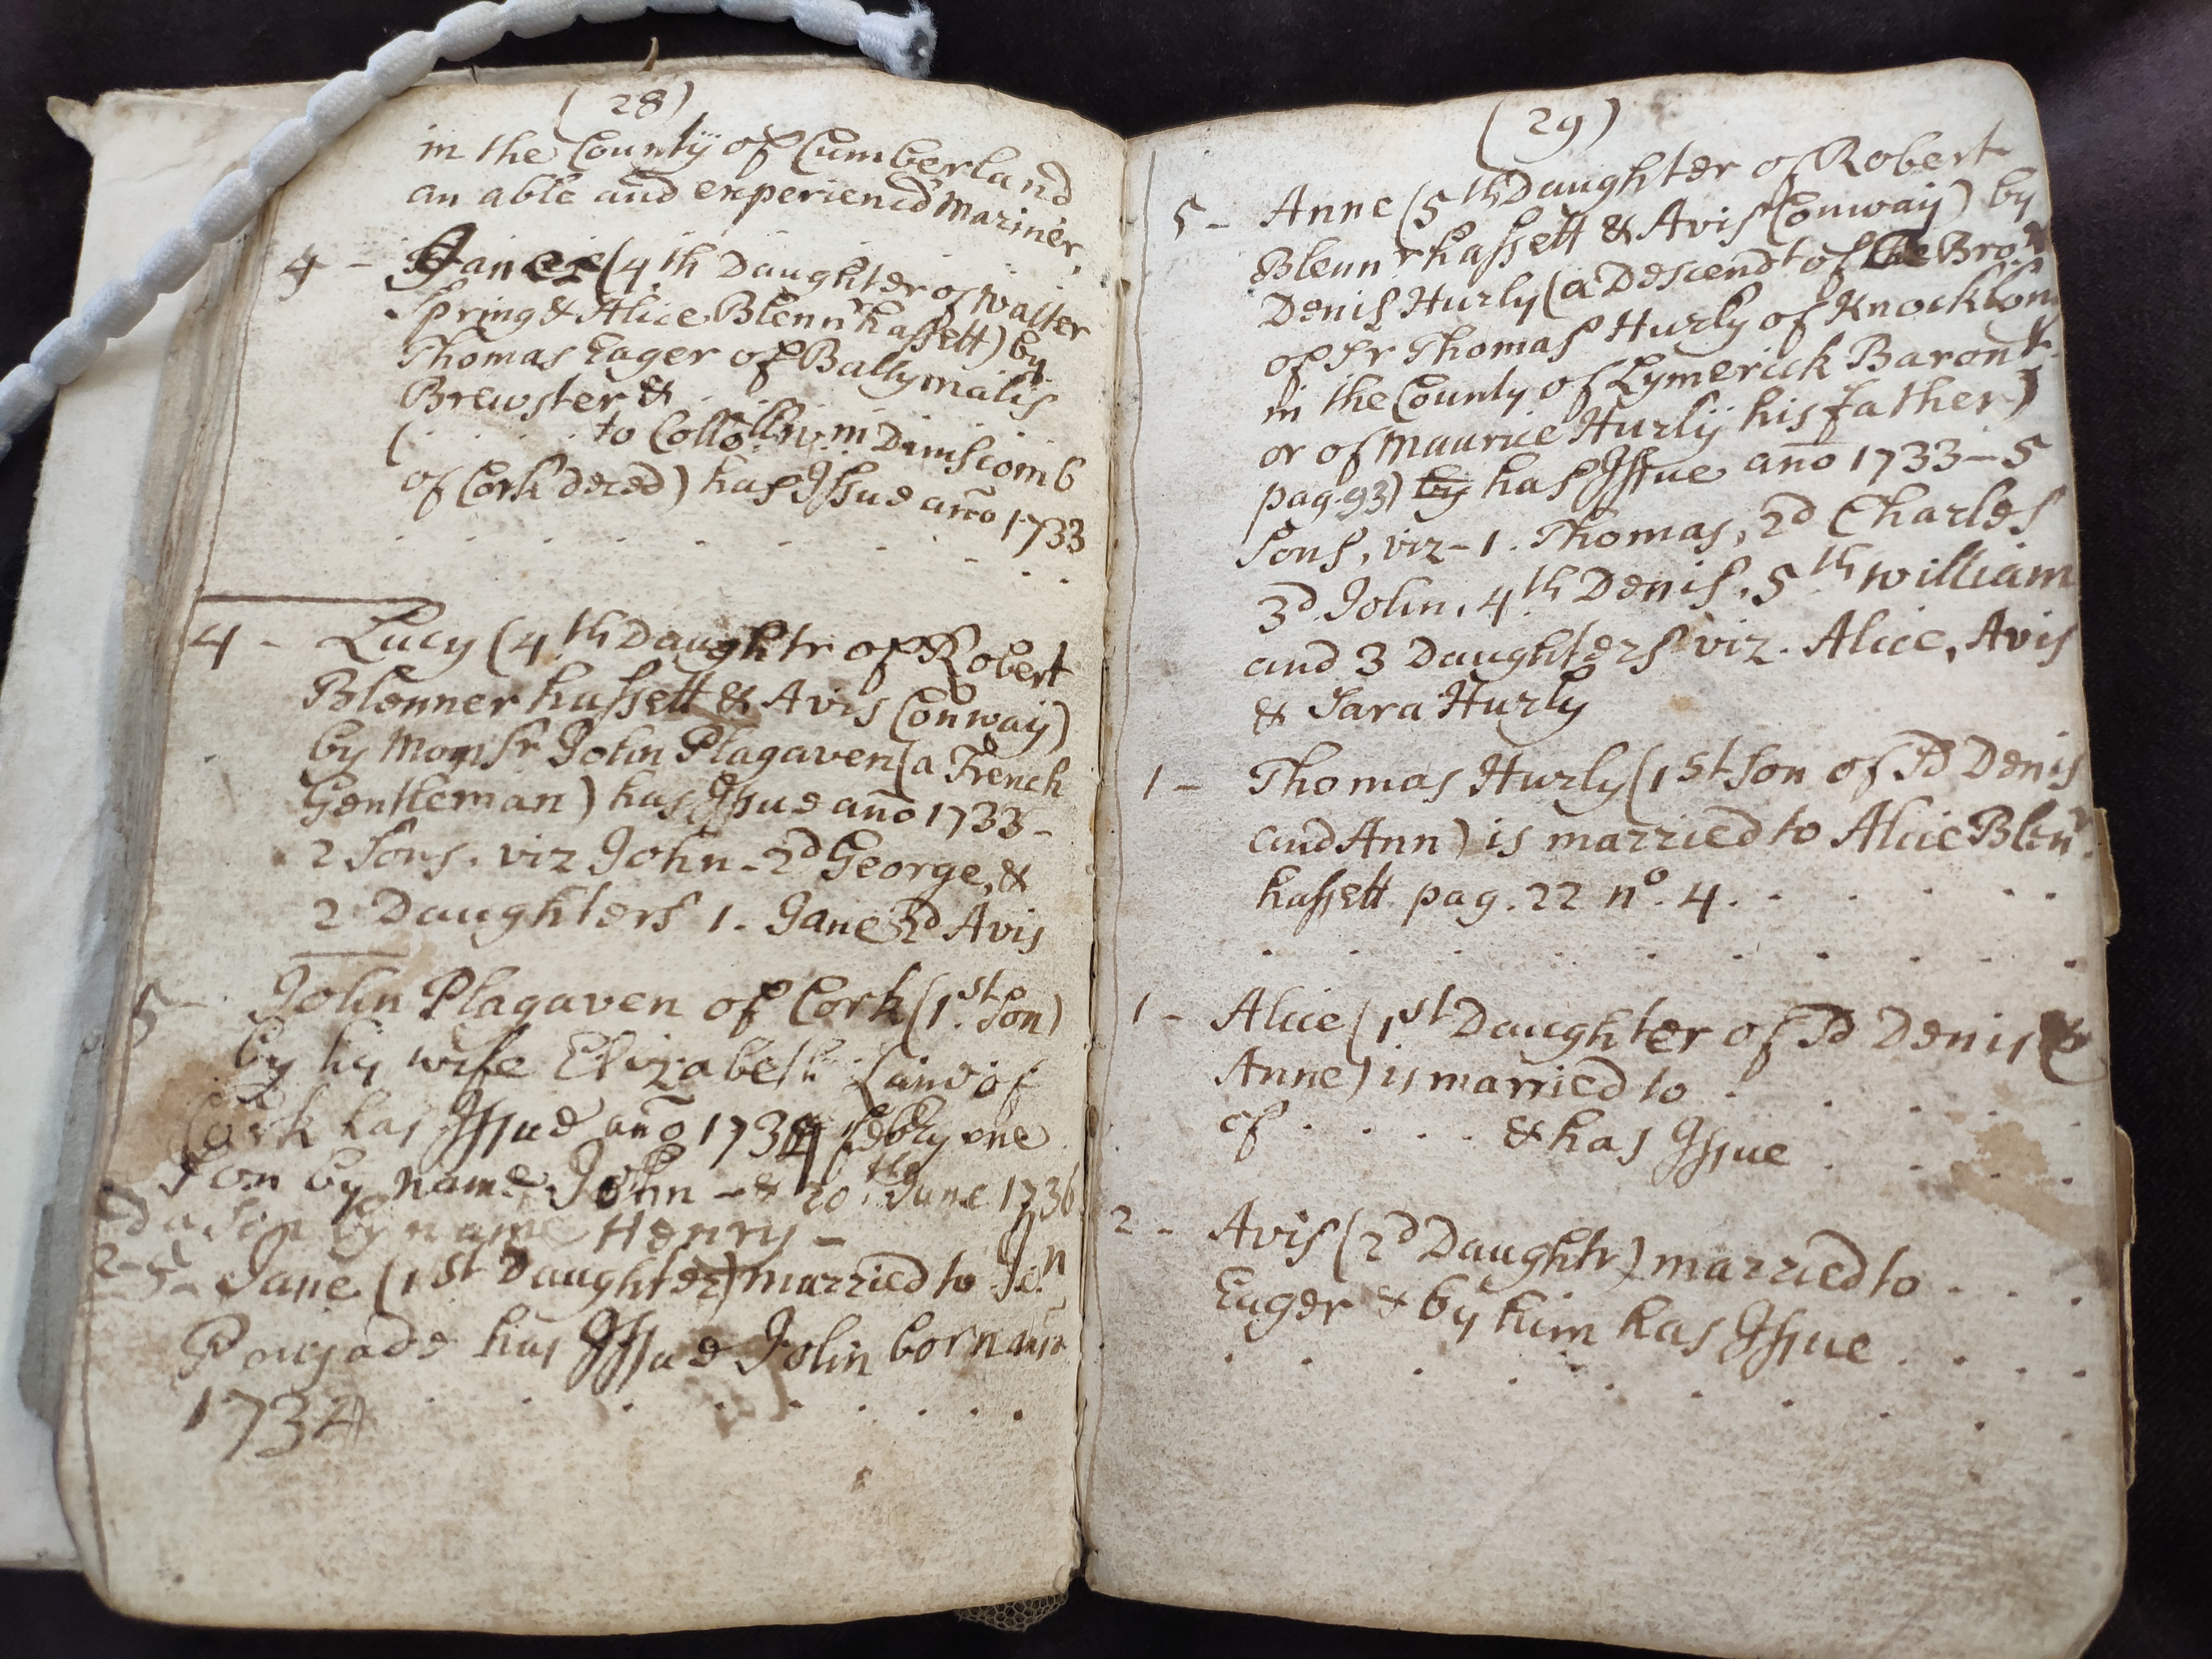 (28)
in the County of Cumberland
an able and experienc'd Mariner.
4 - (4th Daughter of Walter
Spring & Alice Blennrhassett) by
Thomas Eager of Ballymalis
Brewster &
( . . . . . to Collo
of Cork decd) has Issue ano 1733
4 - Lucy (4th Daughtr of Robert
Blennerhassett & Avis Conway)
by Monsr John Plagaven (a French
Gentleman) has Issue ano 1733 -
2 Sons. viz John - 2d George, &
2 Daughters 1. Jane 2d Avis
5 - John Plagaven of Cork (1st Son)
by his wife Elizabeth of
Cork has Issue ano 173 febry one
Son by name John - & 20th June 1736
a Son by name Henry -
2-5 - Jane (1st Daughter) married to
has Issue John born
1734
(29)
5 - Anne (5th Daughter of Robert
Blennrhassett & Avis Conway) by
Denis Hurly (a Descendt of the Bror
of Sr Thomas Hurly of Knocklong
in the County of Lymerick Baront
or of Maurice Hurly his father)
pag. 93) by has Issue ano 1733 - 5
Sons, viz - 1. Thomas, 2d Charles
3d John, 4th Denis, 5th William
and 3 Daughters viz. Alice, Avis
& Sara Hurly
1 - Thomas Hurly (1st Son of Sd Denis
and Ann) is married to Alice Blenr
hassett pag. 22 no. 4.
1 - Alice (1st Daughter of Sd Denis &
Anne) is married to . . . .
of . . . . & has Issue . . . .
2 - Avis (2d Daughtr) married to . . . .
Eager & by him has Issue . . . .